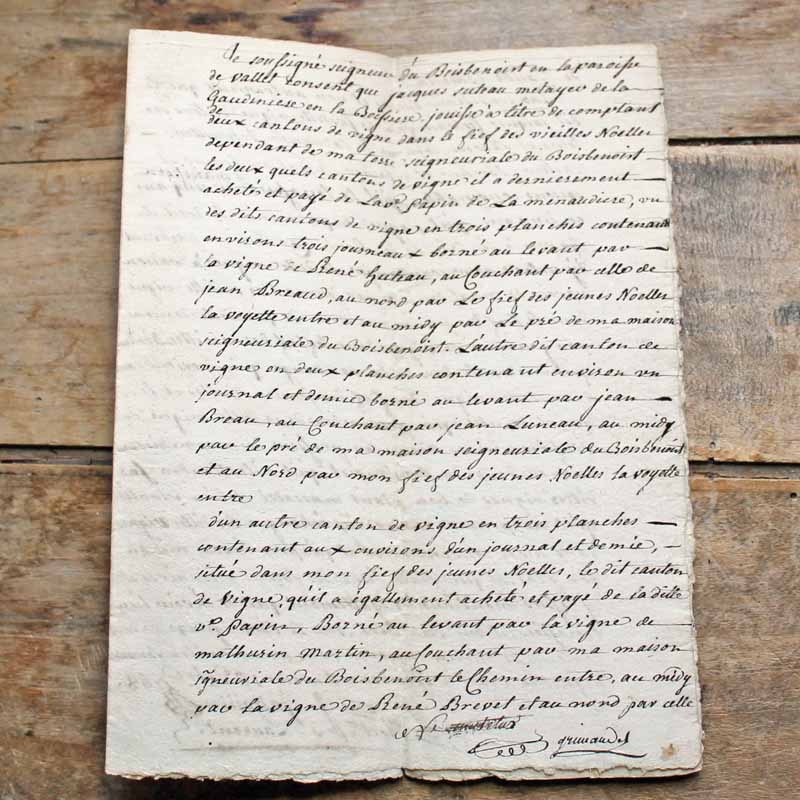 Je soussigné seigneur du Boisbenoist en la paroisse
de vallet consent que jacques suteau metayer de la
Gaudiniere en la Boissiere, jouisse a titre de complant
de
deux cantons de vigne dans le fief des vieilles Noelles
dependant de ma terre seigneuriale du Boisbenoist
les deux quels cantons de vigne il a dernierement
acheté et payé de La v.e Papin de La menaudiere, vn
des dits cantons de vigne en trois planches contenant
environs trois journeaux borné au levant par
la vigne de René huteau, au Couchant par celle de
jean Breaud, au nord par Le fief des jeunes Noelles
la voyette entre et au midy par Le pré de ma maison
seigneuriale du Boisbenoist. L'autre dit canton de
vigne en deux planches contenant environ vn
journal et demie borné au levant par jean
Breau, au Couchant par jean Luneau, au midy
par le pré de ma maison seigneuriale du Boisbenoist
et au Nord par mon fief des jeunes Noelles la voyette
entre
d'un autre canton de vigne en trois planches
contenant aux environs d'un journal et demie,
situé dans mon fief des jeunes Noelles, le dit canton
de vigne, qu'il a égallement acheté et payé de la ditte
v.e Papin, Borné au levant par la vigne de
mathurin Martin, au Couchant par ma maison
signeuriale du Boisbenoist le Chemin entre, au midy
par la vigne de René Brevet et au nord par celle